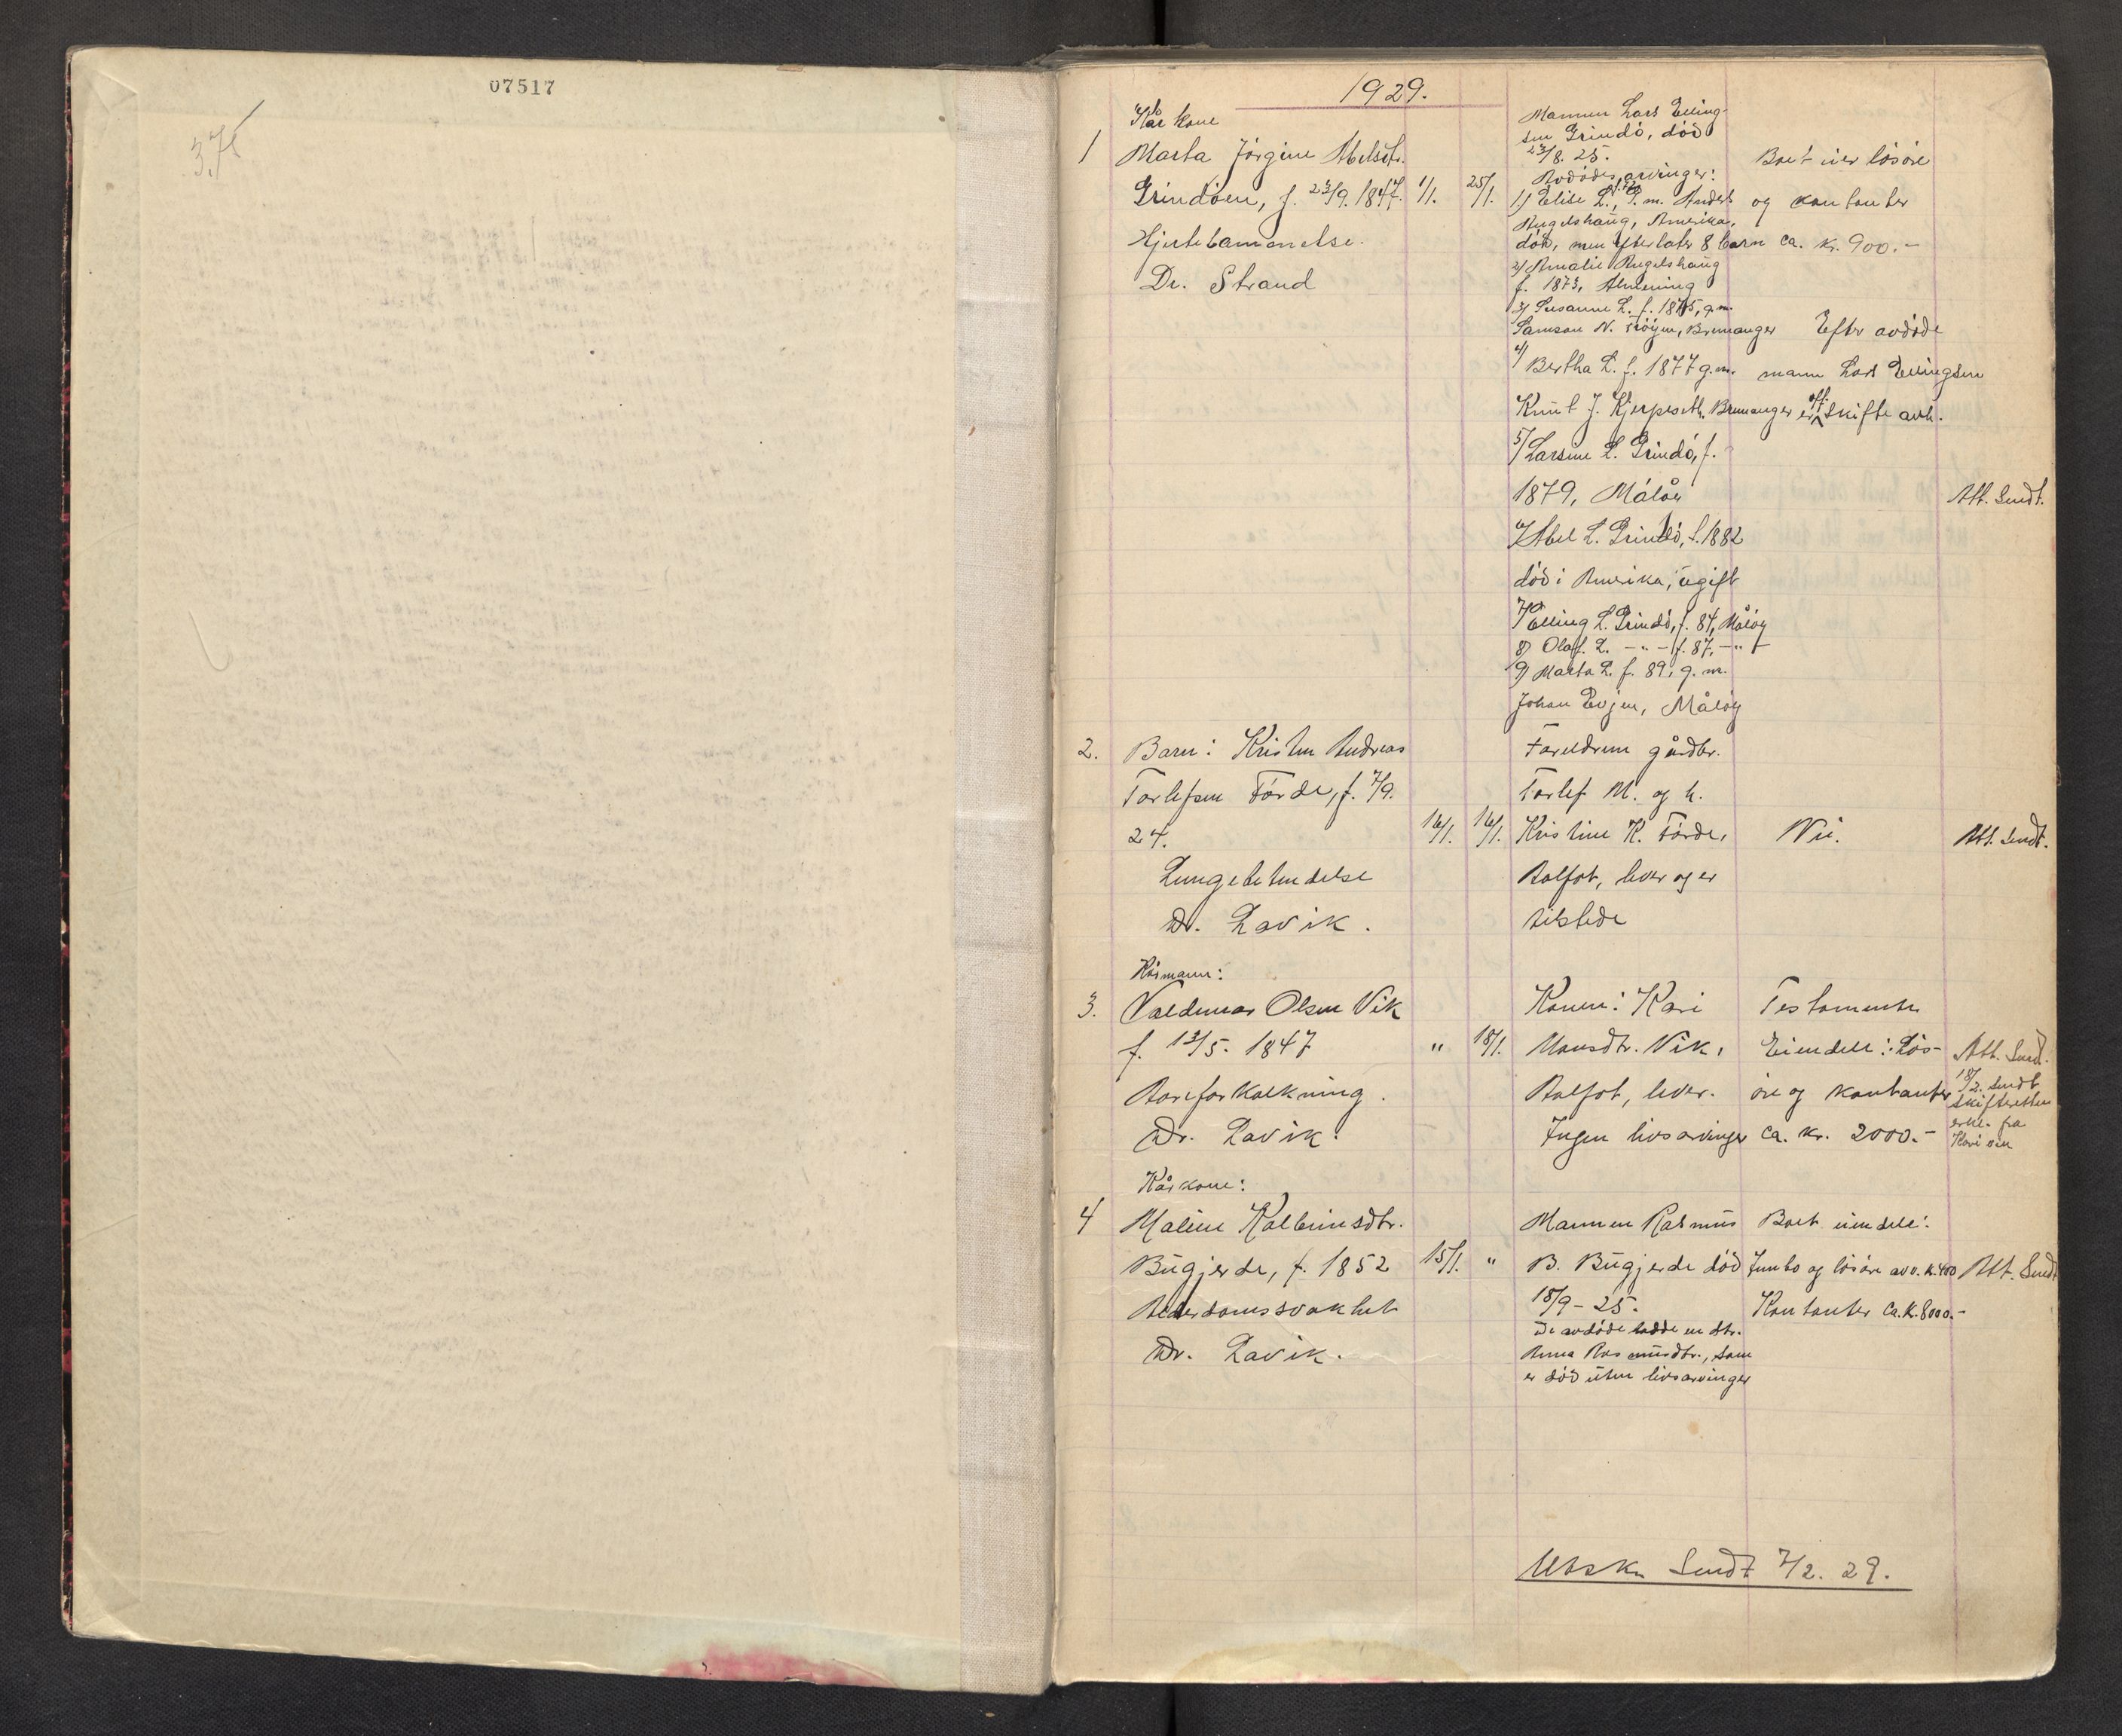 07517
3.75
1929.
Kårkone
1 Marta Jörgine Abelsdtr.
Grindöen, f. 23/9. 1847. 1/1. 25/1.
Hjertelammelse.
Dr. Strand
Mannen Lars Elling-
sen Grindö, död
23/8. 25.
Avdödes arvinger:
1) Elise L., g. m. Anders
Rugelshaug, Amerika,
död, men efterlater 8 barn
2) Amalie Rugelshaug
f. 1873, Almenning
3) Susanne L. f. 1875, g.m.
Samson N. Fröyen, Bremanger
4) Bertha L. f. 1877 g.m.
Knut J. Kjerpeseth. Bremanger
5) Larsine L. Grindö, f.
1879, Målöy
6) Abel L. Grindö, f. 1882
död i Amerika, ugift
7) Elling L. Grindö, f. 84, Målöy
8) Olaf L. - " - f. 87, - " -
9) Marta L. f. 89, g. m.
Johan Evjen, Målöy
Boet eier lösöre
og kontanter
ca. kr. 900.-
Efter avdöde
mann Lars Ellingsen
er off. skifte avh.
Att. Sendt.
2. Barn: Kristen Andreas
Torlefsen Förde, f. 7/9.
24. 16/1. 16/1.
Lungebetendelse
Dr. Lavik.
Foreldrene gårdbr.
Torlef M. og h.
Kristine K. Förde,
Aalfot, lever og er
tilstede
Nei.
Att. Sendt.
Kårmann:
3. Valdemar Olsen Vik
f. 13/5. 1847 " 18/1.
Aareforkalkning.
Dr. Lavik.
Konen: Kari
Monsdtr. Vik,
Aalfot, lever.
Ingen livsarvinger
Testamente
Eiendele: Lös-
öre og kontanter
ca. kr. 2000.-
Att. Sendt.
18/2. sendt
skifteretten
erkl. fra
Kari
Kårkone:
4 Maline Kolbeinsdtr.
Bugjerde, f. 1852 15/1. "
Alderdomssvakhet
Dr. Lavik.
Mannen Rasmus
B. Bugjerde död
18/9 - 25.
De avdöde hadde en dtr.
Anna Rasmusdtr., som
er död uten livsarvinger
Boets eiendele:
Innbo og lösöre av v. k. 400
Kontanter ca. k. 8000.-
Att. Sendt
Utskr. Sendt 7/2. 29.